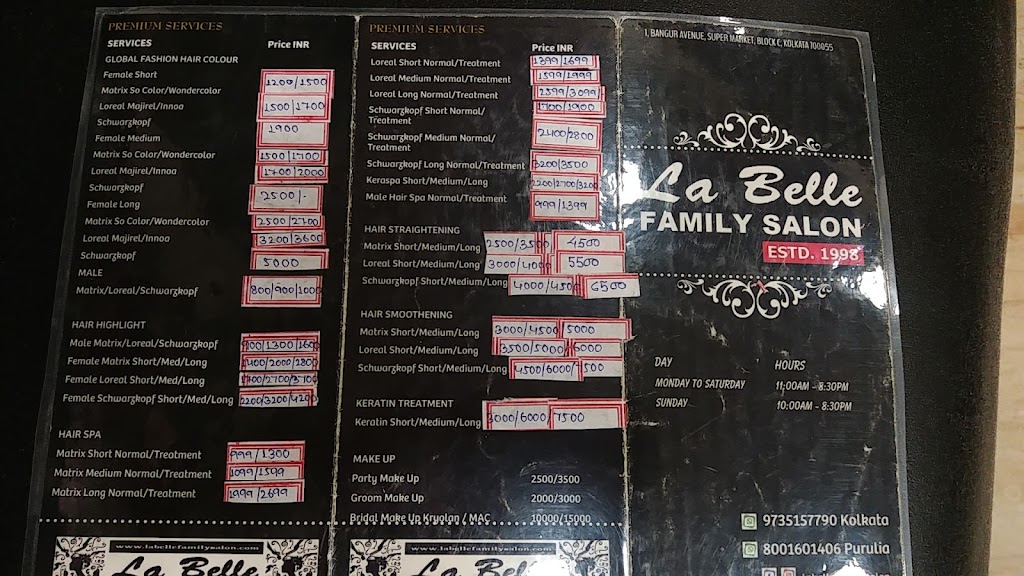 PREMIUM SERVICES
SERVICES Price INR
GLOBAL FASHION HAIR COLOUR
Female Short
Matrix So Color/Wondercolor 1200/1500
Loreal Majirel/Innoa 1500/1700
Schwarzkopf 1900
Female Medium
Matrix So Color/Wondercolor 1500/1700
Loreal Majirel/Innoa 1700/2000
Schwarzkopf 2500/-
Female Long
Matrix So Color/Wondercolor 2500/2700
Loreal Majirel/Innoa 3200/3600
Schwarzkopf 5000
MALE
Matrix/Loreal/Schwarzkopf 800/900/1000
HAIR HIGHLIGHT
Male Matrix/Loreal/Schwarzkopf
Female Matrix Short/Med/Long
Female Loreal Short/Med/Long
Female Schwarzkopf Short/Med/Long 2200/3200/4200
HAIR SPA
Matrix Short Normal/Treatment 999/1300
Matrix Medium Normal/Treatment 1099/1599
Matrix Long Normal/Treatment 1999/2699
www.labellefamilysalon.com
La Belle
PREMIUM SERVICES
SERVICES Price INR
Loreal Short Normal/Treatment 1399/1699
Loreal Medium Normal/Treatment 1599/1999
Loreal Long Normal/Treatment 2599/3099
Schwarzkopf Short Normal/ 1700/1900
Treatment
Schwarzkopf Medium Normal/ 2400/2800
Treatment
Schwarzkopf Long Normal/Treatment 3200/3500
Keraspa Short/Medium/Long 2200/2700/3200
Male Hair Spa Normal/Treatment 999/1399
HAIR STRAIGHTENING
Matrix Short/Medium/Long 2500/3500 4500
Loreal Short/Medium/Long 3000/4000 5500
Schwarzkopf Short/Medium/Long 4000/4500 6500
HAIR SMOOTHENING
Matrix Short/Medium/Long 3000/4500/5000
Loreal Short/Medium/Long 3500/5000/6000
Schwarzkopf Short/Medium/Long 4500/6000/7500
KERATIN TREATMENT
Keratin Short/Medium/Long /6000/7500
MAKE UP
Party Make Up 2500/3500
Groom Make Up 2000/3000
Bridal Make Up Kryolan / MAC 10000/15000
www.labellefamilysalon.com
La Belle
1, BANGUR AVENUE, SUPER MARKET, BLOCK C, KOLKATA 700055
La Belle
FAMILY SALON
ESTD. 1998
DAY HOURS
MONDAY TO SATURDAY 11:00AM - 8:30PM
SUNDAY 10:00AM - 8:30PM
9735157790 Kolkata
8001601406 Purulia